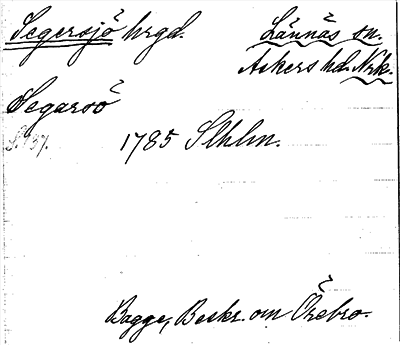 Segersjö hrgd. Lännäs sn.
Askers hd. Nrk.
Segarsö
S. 137. 1785 Slhlm.
Bagge, Beskr. om Örebro.